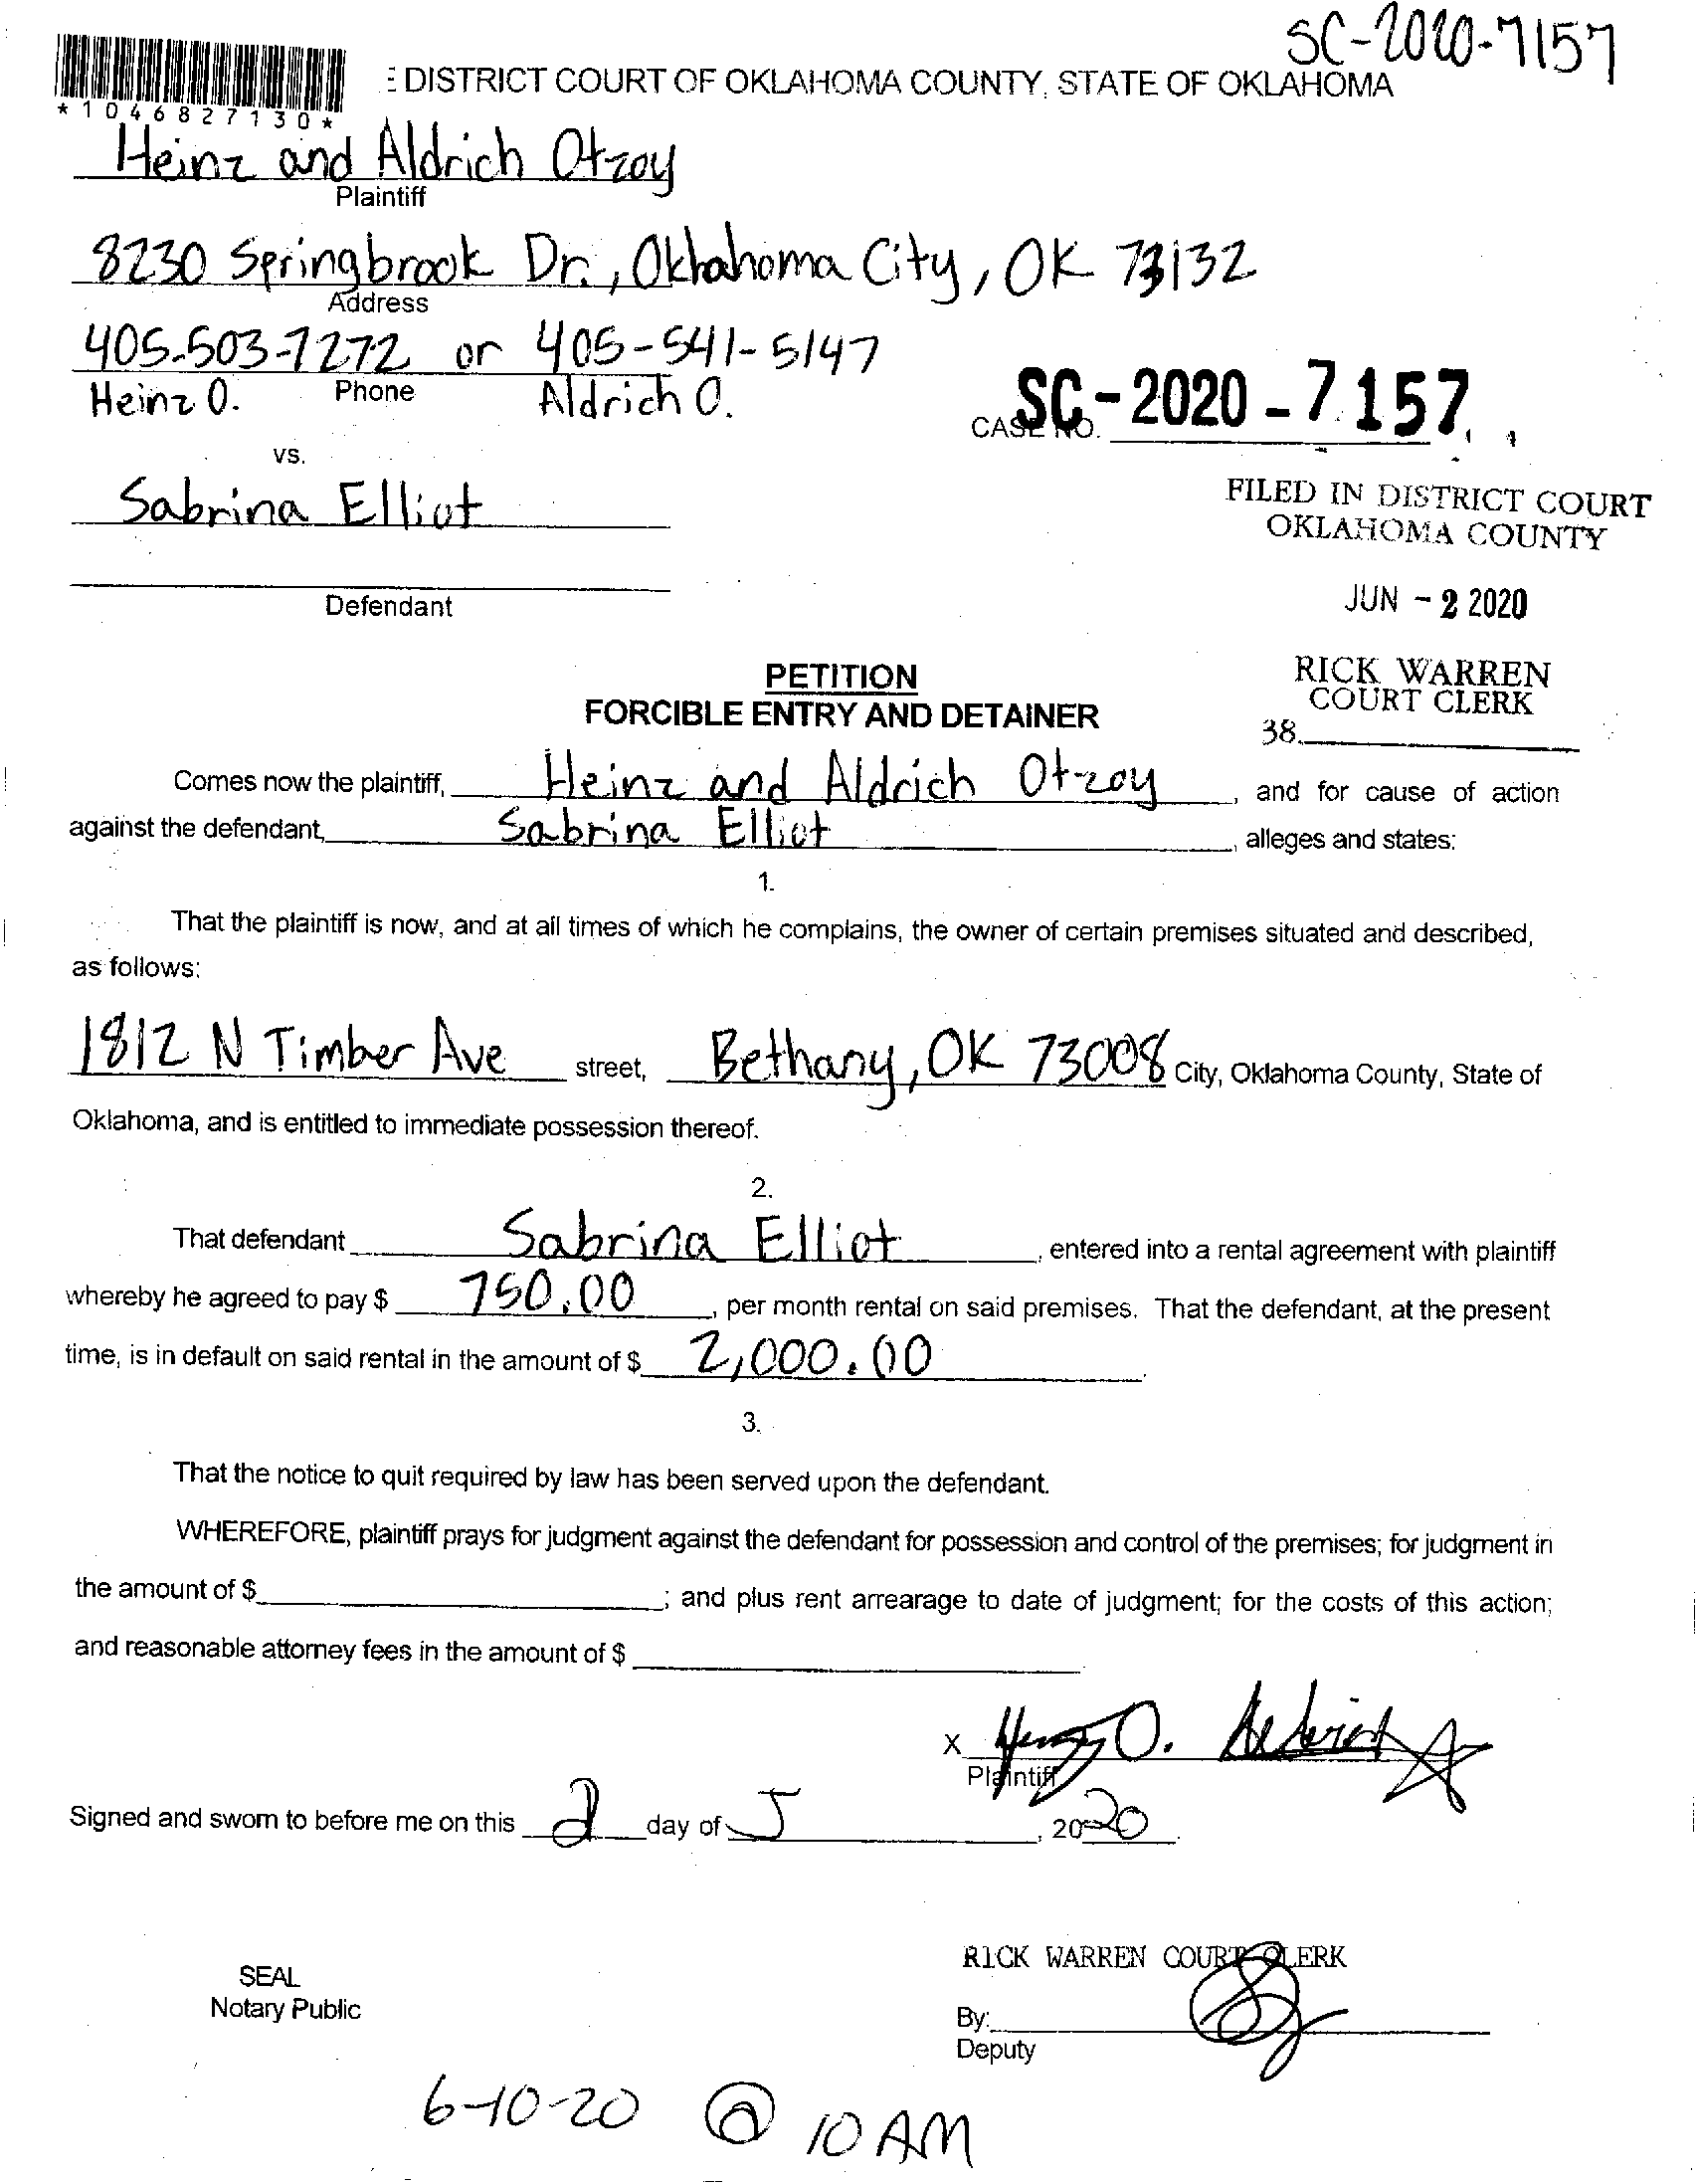 SC-2020-7157
DISTRICT COURT OF OKLAHOMA COUNTY, STATE OF OKLAHOMA
*1046827130*
Heinz and Aldrich Otzoy
Plaintiff
8230 Springbrook Dr., Oklahoma City, OK 73132
Address
405-503-7272 or 405-541-5147
Heinz O. Phone Aldrich O.
CASE NO. SC-2020-7157
vs.
Sabrina Elliot
FILED IN DISTRICT COURT
OKLAHOMA COUNTY
Defendant
JUN - 2 2020
PETITION
FORCIBLE ENTRY AND DETAINER
RICK WARREN
COURT CLERK
38.
Comes now the plaintiff, Heinz and Aldrich Otzoy, and for cause of action
against the defendant, Sabrina Elliot, alleges and states:
1.
That the plaintiff is now, and at all times of which he complains, the owner of certain premises situated and described,
as follows:
1812 N Timber Ave street, Bethany, OK 73008 City, Oklahoma County, State of
Oklahoma, and is entitled to immediate possession thereof.
2.
That defendant Sabrina Elliot, entered into a rental agreement with plaintiff
whereby he agreed to pay $ 750.00, per month rental on said premises. That the defendant, at the present
time, is in default on said rental in the amount of $ 2,000.00.
3.
That the notice to quit required by law has been served upon the defendant.
WHEREFORE, plaintiff prays for judgment against the defendant for possession and control of the premises; for judgment in
the amount of $ ; and plus rent arrearage to date of judgment; for the costs of this action;
and reasonable attorney fees in the amount of $
X
Plaintiff
Signed and sworn to before me on this 2 day of J, 2020.
RICK WARREN COURT CLERK
SEAL
Notary Public
By:
Deputy
6-10-20 @ 10 AM